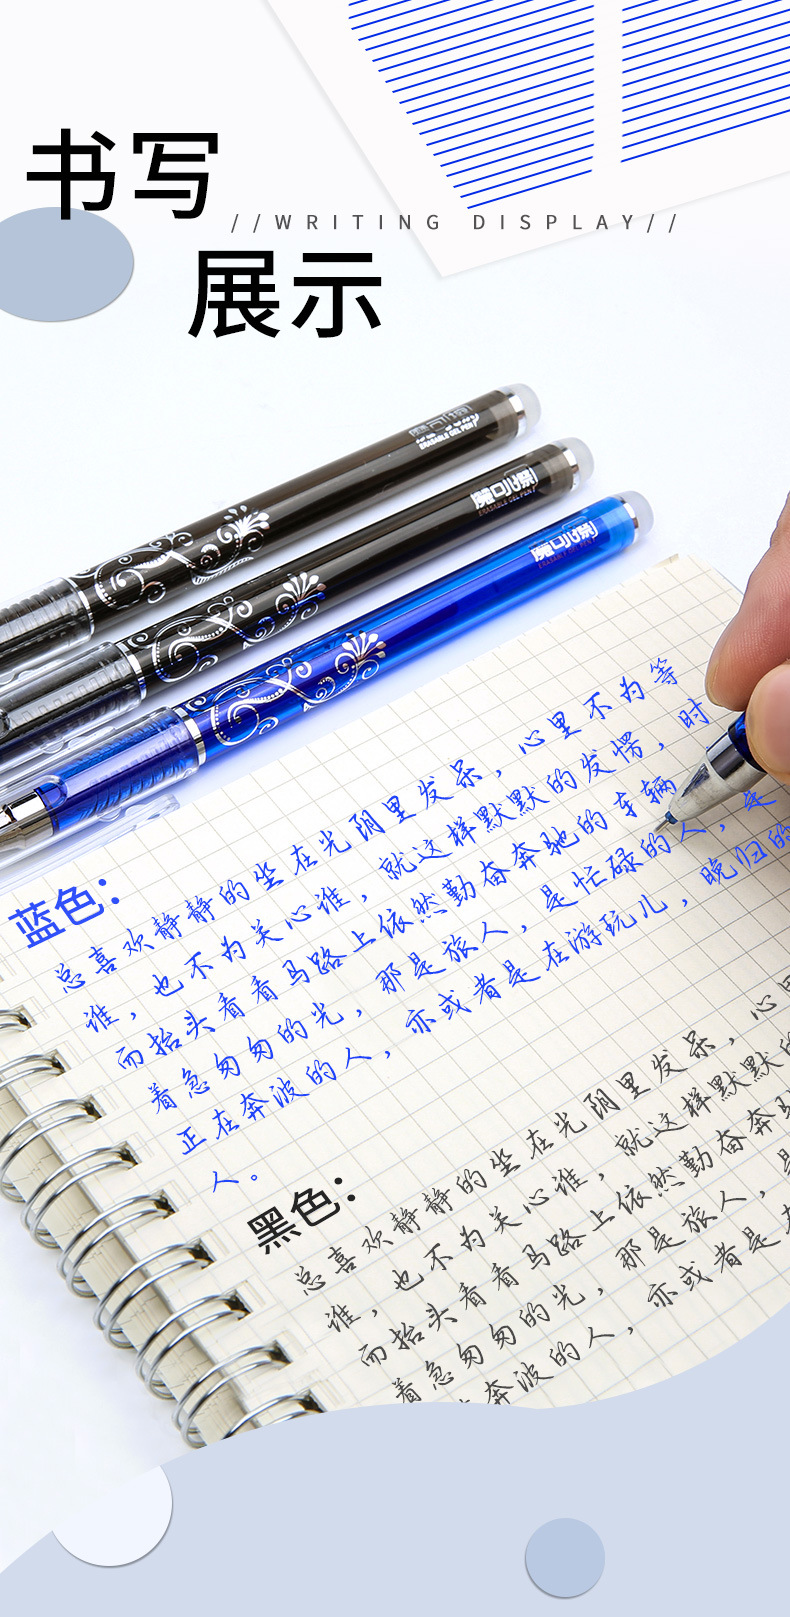 书写
//WRITING DISPLAY//
展示
ERASABLE GEL PEN
魔可擦
ERASABLE GEL PEN
魔可擦
ERASABLE GEL PEN
蓝色：
总喜欢静静的坐在光阴里发呆，心里不为等
谁，也不为关心谁，就这样默默的发愣，时
而抬头看看马路上依然勤奋奔驰的车辆
着急匆匆的光，那是旅人，是忙碌的人，是
正在奔波的人，亦或者是在游玩儿，晚归的
人。
黑色：
总喜欢静静的坐在光阴里发呆，心里
谁，也不为关心谁，就这样默默的
而抬头看看马路上依然勤奋奔驰
着急匆匆的光，那是旅人，是
奔波的人，亦或者是在